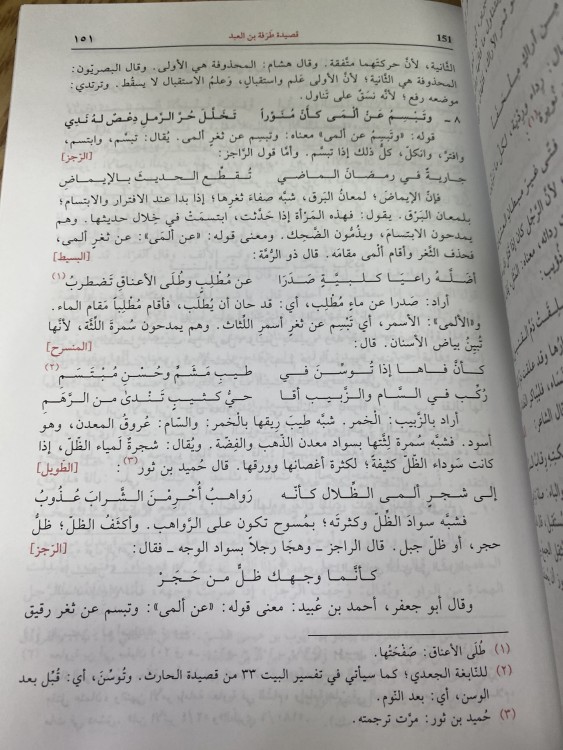 151 قصيدة طَرَفة بن العبد ١٥١
الثّانية، لأنّ حركتَهما متّفقة. وقال هشام: المحذوفة هي الأولى. وقال البصريّون:
المحذوفة هي الثّانية؛ لأنّ الأولى عَلم واستقبال، وعلمُ الاستقبال لا يسقط. وترتدي:
موضعه رفع؛ لأنّه نسَقٌ على تناول.
٨ ـ وتَبسِمُ عَنْ ألْمَى كأنّ مُنَوّراً تَخلّلَ حُرَّ الرّملِ دِعْصٌ لهُ نَدِي
قوله: «وتبسِمُ عن ألمى» معناه: وتبسِم عن ثغرٍ ألمى. يُقال: تبسّم، وابتسم،
وافترّ، وانكلّ، كلُّ ذلك إذا تبسّم. وأمّا قول الرّاجز: [الرّجز]
جاريةٌ في رمضانَ الماضي تُقطّعُ الحديثَ بالإيماضِ
فإنّ الإيماضَ؛ لمعانُ البرَق، شبّه صفاءَ ثغرِها؛ إذا بدا عند الافترار والابتسام؛
بلمعان البَرْق. يقول: فهذه المَرْأة إذا حَدّثت، ابتسمتْ في خِلال حديثها. وهم
يمدحون الابتسامَ، ويذُمّون الضَّحِك. ومعنى قوله: «عن ألمَى»: عن ثغرٍ ألمى،
فحذف الثَّغر وأقام ألْمى مقامَه. قال ذو الرُّمّة: [البسيط]
أضَلَّهُ راعيَا كلبيَّةٍ صَدَرَا عن مُطْلِبٍ وطُلَى الأعناقِ تَضطربُ(١)
أراد: صَدرا عن ماءٍ مُطْلِب، أي: قد حان أن يُطْلَب، فأقام مُطلِباً مَقامَ الماء.
و«الألمى»: الأسمر، أي تَبْسِم عن ثغرٍ أسمرِ اللِّثاث. وهم يمدحون سُمرةَ اللِّثّة، لأنّها
تُبيِّن بياض الأسنان. قال: [المنسرح]
كأنّ فاها إذا تُوسّنَ في طيبِ مَشَمٍّ وحُسْنِ مُبْتَسَمِ(٢)
رُكّبَ في السَّامِ والزَّبيب أقا حيُّ كثيبٍ تَندَى من الرِّهَمِ
أراد بالزّبيب: الخمر. شبّه طيبَ رِيقها بالخمر: والسّام: عُروقُ المعدن، وهو
أسود. فشبّه سُمرة لِثَّتها بسواد معدن الذّهب والفِضّة. ويُقال: شجرةٌ لَمياء الظّلّ، إذا
كانت سوداءَ الظّلّ كثيفةً؛ لكثرة أغصانها وورقها. قال حُميد بن ثور(٣): [الطّويل]
إلى شجرٍ ألمى الظِّلال كأنّه رواهبُ أحْرمْنَ الشَّرابَ عُذوبُ
فشبّه سوادَ الظّلِّ وكثرتَه؛ بمُسوحٍ تكون على الرّواهب. وأكثَفُ الظّلّ؛ ظلُّ
حجر، أو ظلّ جبل. قال الراجز ـ وهجَا رجلاً بسواد الوجه ـ فقال: [الرّجز]
كأنّما وجهكَ ظلٌّ من حَجَرْ
وقال أبو جعفر، أحمد بن عُبيد: معنى قوله: «عن ألمى»: وتبسم عن ثغر رقيق
(١) طُلَى الأعناق: صَفْحَتُها.
(٢) للنّابغة الجعدي؛ كما سيأتي في تفسير البيت ٣٣ من قصيدة الحارث. وتُوسّنَ، أي: قُبْل بعد
الوسن، أي: بعد النّوم.
(٣) حُميد بن ثور: مرّت ترجمته.